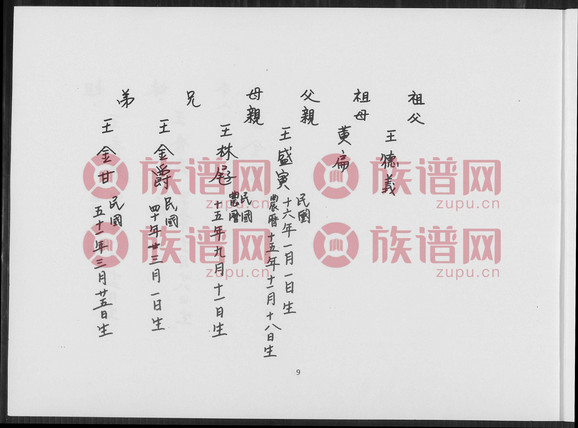 祖父
王德義
祖母
黃扁
父親
王盛寅
民國
十六年一月一日生
農曆十五年十一月十八日生
母親
王林
民國
農曆
十五年九月十一日生
兄
王金爵
民國
四十年廿三月一日生
弟
王金甘
民國
五十一年三月廿五日生
9
族谱网
zupu.cn
族谱网
zupu.cn
族谱网
zupu.cn
族谱网
zupu.cn